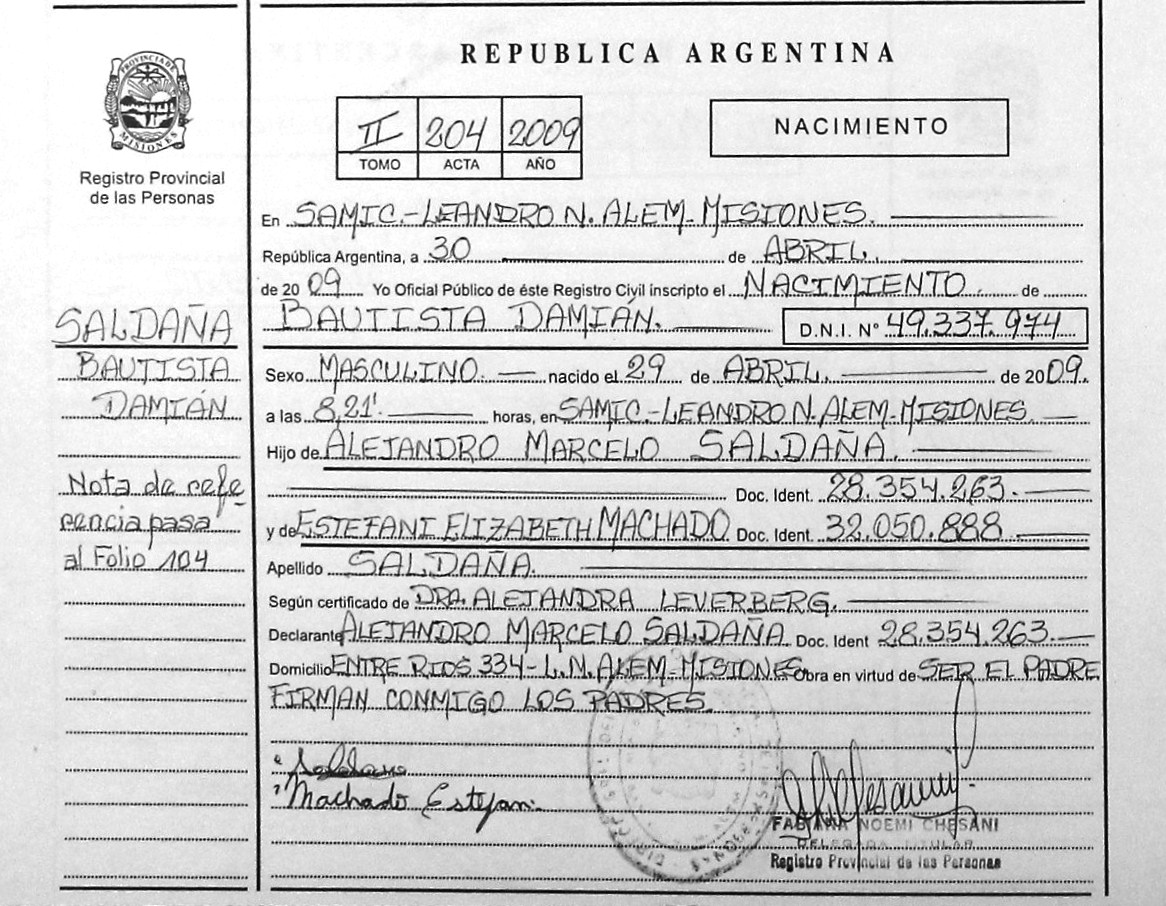 REPUBLICA ARGENTINA
PROVINCIA DE MISIONES
Registro Provincial
de las Personas
II 204 2009
TOMO ACTA AÑO
NACIMIENTO
En SAMIC.-LEANDRO N. ALEM-MISIONES.
República Argentina, a 30 de ABRIL.
de 2009 Yo Oficial Público de éste Registro Civil inscripto el NACIMIENTO de
BAUTISTA DAMIÁN. D.N.I. N° 49.337.974
Sexo MASCULINO. nacido el 29 de ABRIL. de 2009.
a las 8,21' horas, en SAMIC.-LEANDRO N. ALEM-MISIONES.
Hijo de ALEJANDRO MARCELO SALDAÑA.
Doc. Ident. 28.354.263.
y de ESTEFANI ELIZABETH MACHADO. Doc. Ident. 32.050.888
Apellido SALDAÑA.
Según certificado de DRA. ALEJANDRA LEVERBERG.
Declarante ALEJANDRO MARCELO SALDAÑA. Doc. Ident 28.354.263.
Domicilio ENTRE RIOS 334-L.N. ALEM-MISIONES. Obra en virtud de SER EL PADRE
FIRMAN CONMIGO LOS PADRES.
SALDAÑA
BAUTISTA
DAMIÁN
Nota de refe
rencia pasa
al Folio 104
Machado Estefani
FABIANA NOEMI CHESANI
DELEGADA TITULAR
Registro Provincial de las Personas